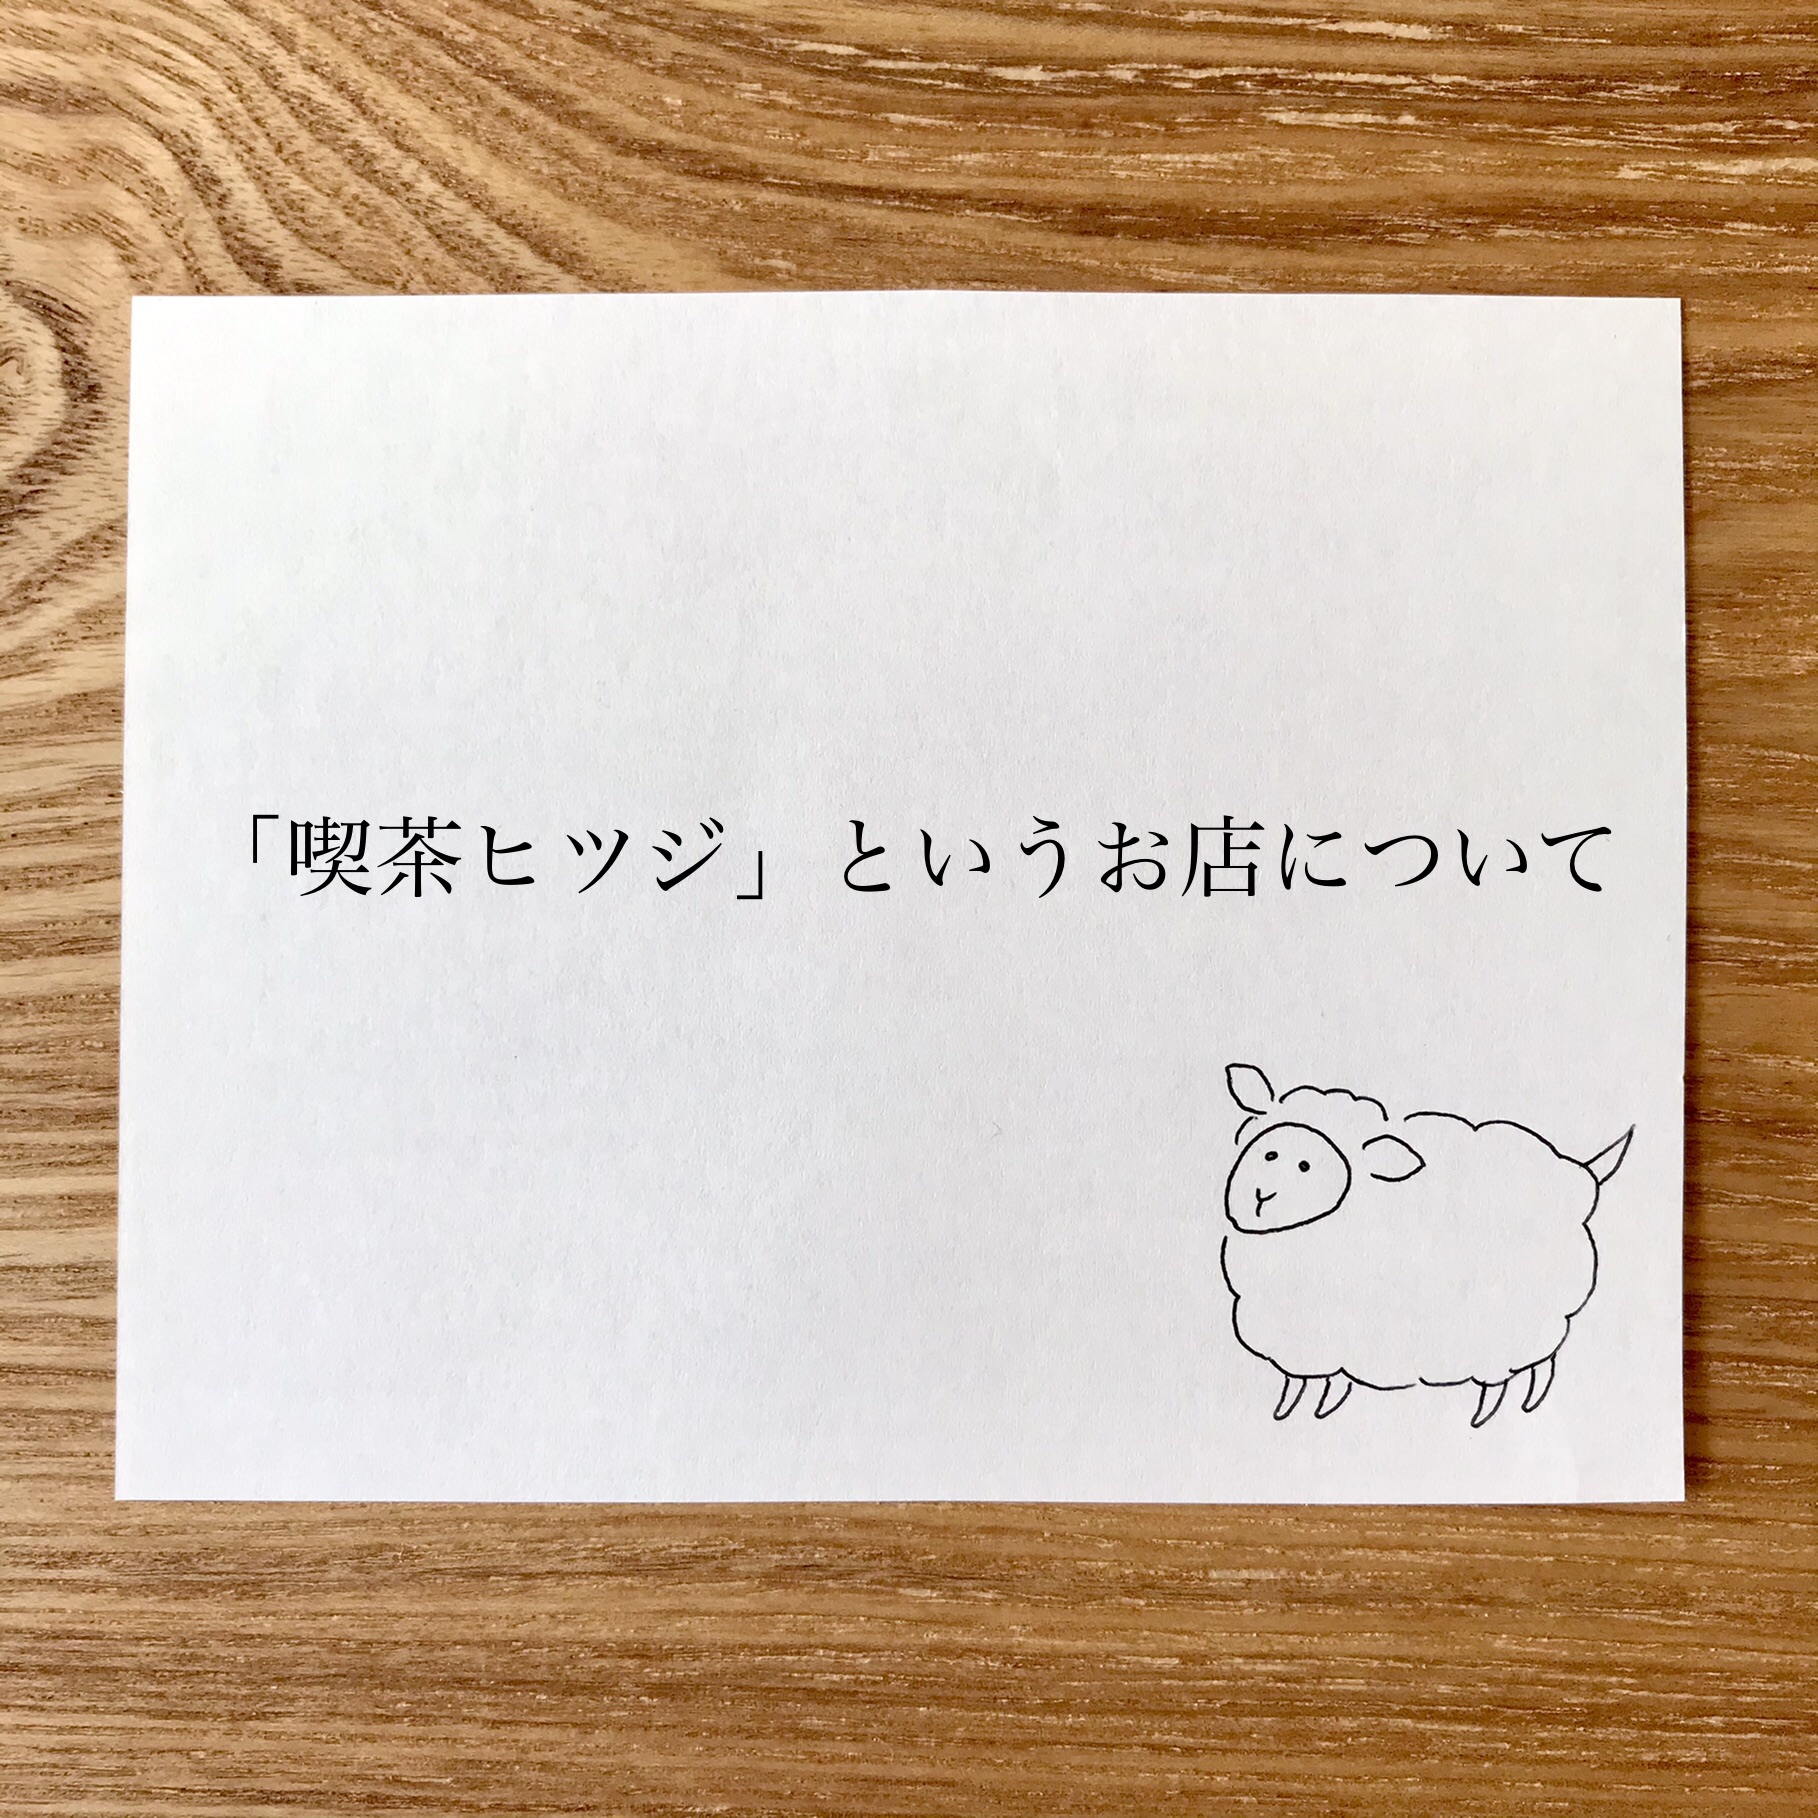 「喫茶ヒツジ」というお店について